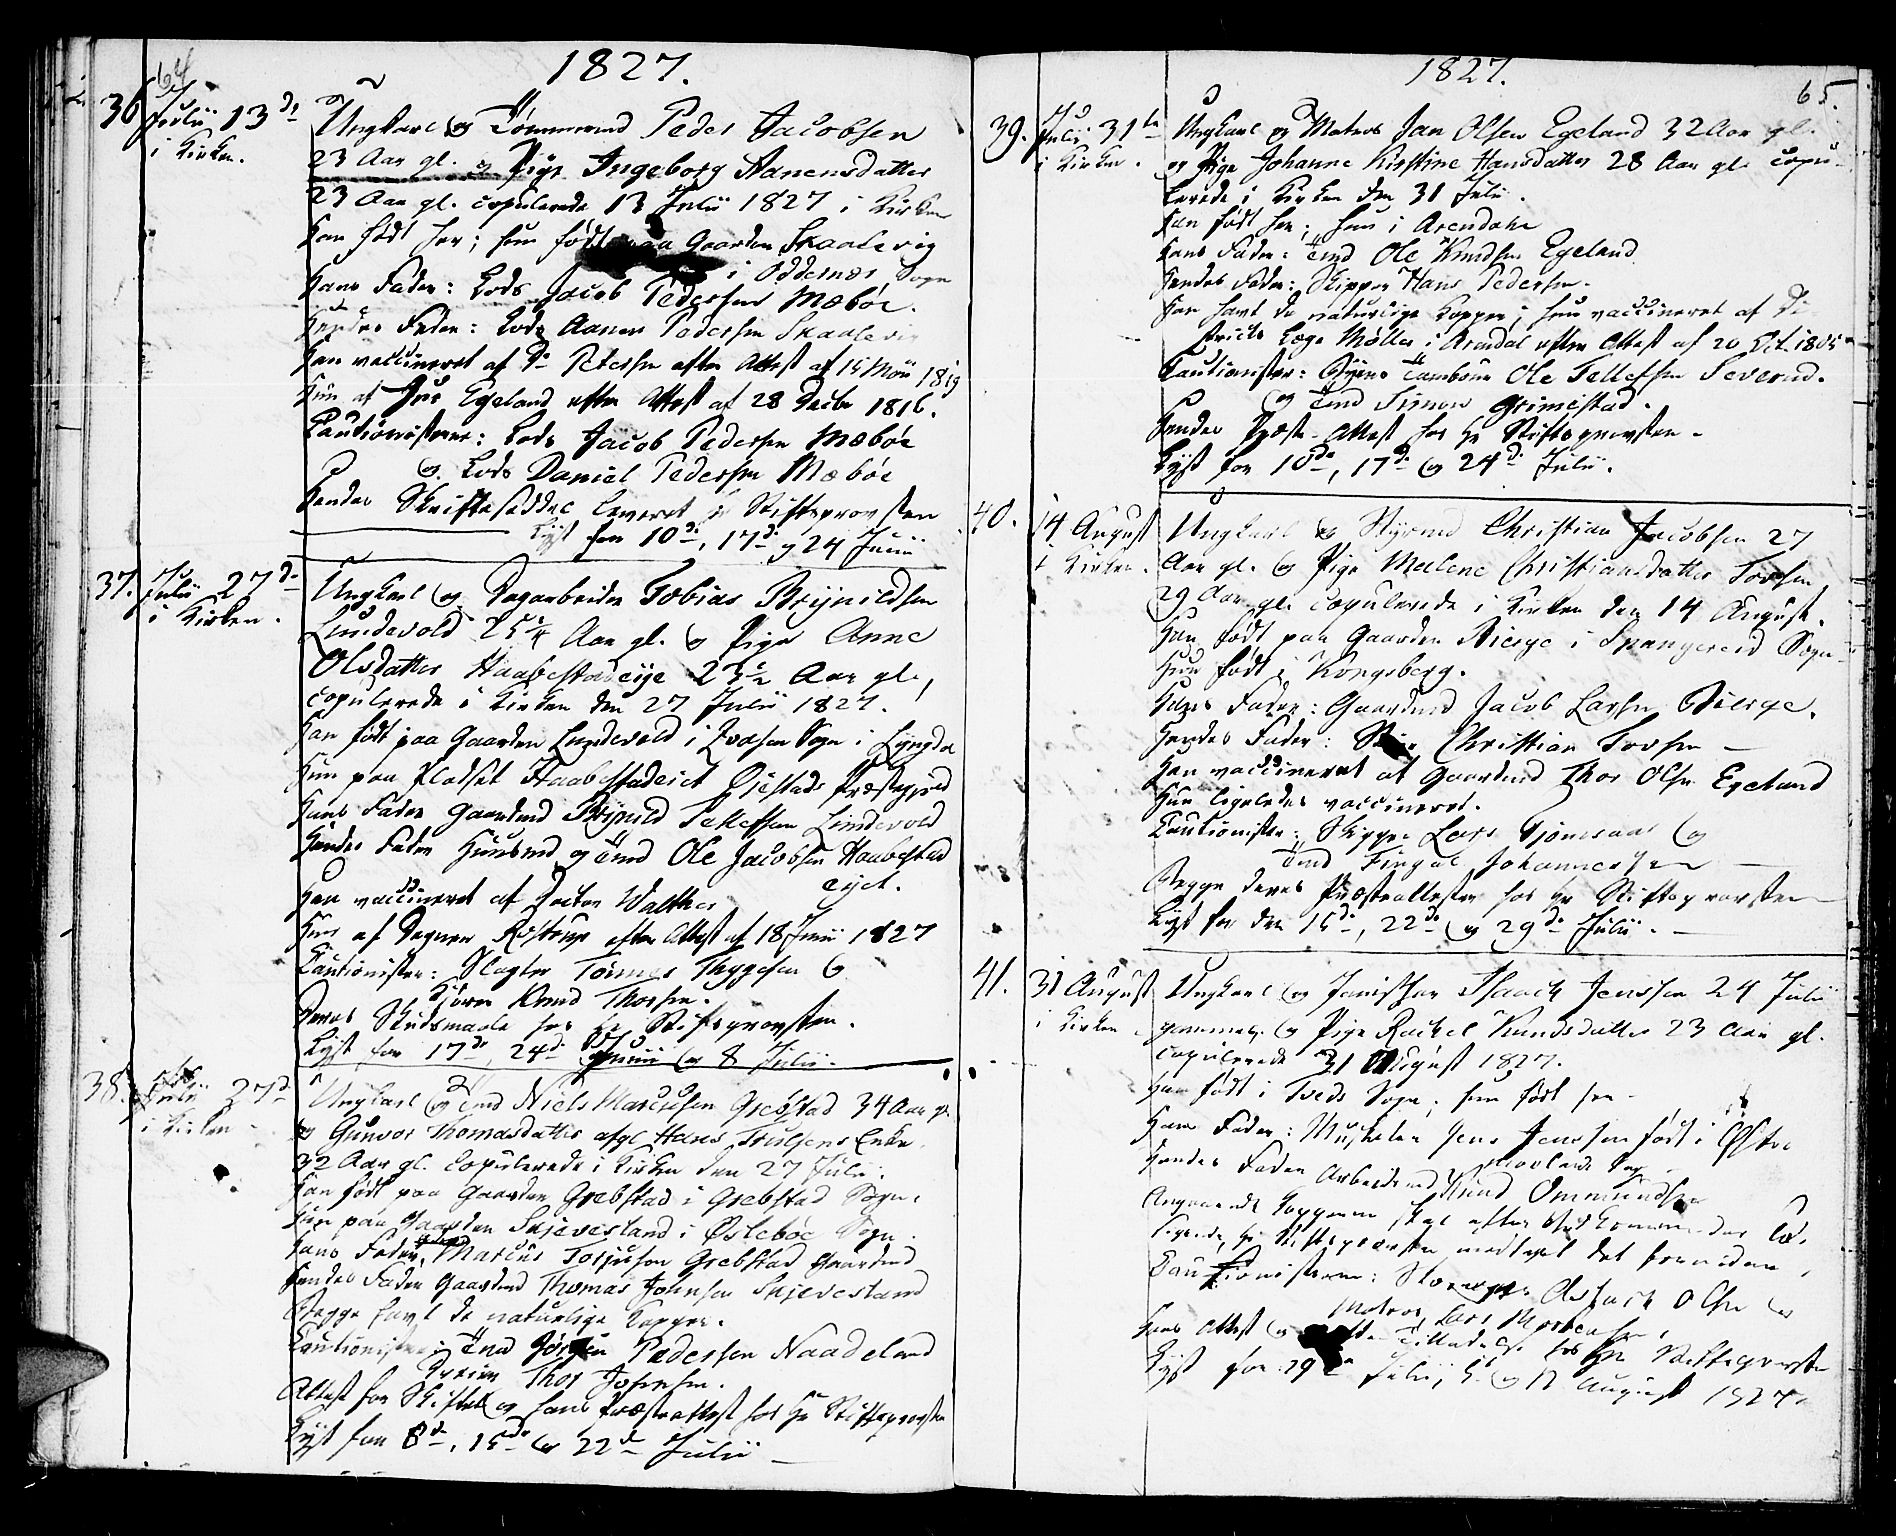 64
1827.
36 Julii 13de
i Kirken.
Ungkarl og Tömmermd Peder Jacobsen
23 Aar gl. og Pige Ingeborg Aanensdatter
23 Aar gl. copulerede 13 Julii 1827 i Kirken
Han födt her; hun födt paa Gaarden Skaalevig
i Oddernes Sogn
Hans Fader: Lods Jacob Pedersen Mæböe.
Hendes Fader: Lods Aanen Pedersen Skaalevig
Han vaccineret af Dr Petersen efter Attest af 15 Mai 1819
Hun af Jns Egeland efter Attest af 28 Decbr 1816.
Cautionisterne: Lods Jacob Pedersen Mæböe
og Lods Daniel Pedersen Mæböe
Hendes Skrifteseddel leveret Stiftsprovsten
Lyst for 10de, 17de og 24 Junii
37. Julii 27de
i Kirken.
Ungkarl og Dagarbeider Tobias Brynildsen
Lundevold 25 1/4 Aar gl. og Pige Anne
Olsdatter Haabestadeije 23 1/2 Aar gl.,
copulerede i Kirken den 27 Julii 1827.
Han födt paa Gaarden Lundevold i Qvaasen Sogn i Lyngda
Hun paa Pladset Haabestadeiet Öiestads Præstegjeld
Hans Fader Gaardmd Brynild Tellefsen Lundevold
Hendes Fader Huusmd og Tmd Ole Jacobsen Haabestad
eiet.
Han vaccineret af Doctor Walther
Hun af Degnen Rostrup efter Attest af 18 Junii 1827
Cautionister: Slagter Tönnes Thygesen og
Knud Thorsen.
Deres Skudsmaale hos Hr Stiftsprovsten.
Lyst for 17de, 24de Junii og 8 Julii.
38. Julii 27de
i Kirken
Ungkarl og Tmd Niels Marcusen Grebstad 34 Aar gl.
og Gunvor Thomasdatter afgl. Hans Trulsens Enke
32 Aar gl. Copulerede i Kirken den 27 Julii.
Han födt paa Gaarden Grebstad i Grebstad Sogn.
Hun paa Gaarden Skjevesland i Öslebøe Sogn.
Hans Fader Marcus Torjusen Grebstad Gaardmd
Hendes Fader Gaardmd Thomas Johnsen Skjevesland
Begge havt de naturlige Kopper.
Cautionister: Tmd Jörgen Pedersen Naadeland
Thor Josephsen.
Attest for Skiftet og hans Præsteattest hos Hr Stiftsprovsten
Lyst for 8de, 15de og 22de Julii
1827.
65.
39. Julii 31te
i Kirken.
Ungkarl og Matros Jan Olsen Egeland 32 Aar gl.
og Pige Johanne Kirstine Hansdatter 28 Aar gl. copu-
lerede i Kirken den 31 Julii.
Han födt her; hun i Arendahl
Hans Fader: Tmd Ole Knudsen Egeland
Hendes Fader: Skipper Hans Pedersen.
Han havt de naturlige Kopper; hun vaccineret af Di-
stricts Læge Møller i Arendal efter Attest af 20 Oct. 1805
Cautionister: Byens Tambour Ole Tellefsen Severud.
og Tmd Simon Grimestad.
Hendes Præste-Attest hos Hr Stiftsprovsten.
Lyst for 10de, 17de og 24de Julii.
40. 14 August
i Kirken.
Ungkarl og Styrmd Christian Jacobsen 27
Aar gl. og Pige Malene Christiansdatter Tovsen
29 Aar gl. copulerede i Kirken den 14 August.
Han födt paa Gaarden Bierge i Spangereid Sogn
Hun födt i Kongsberg.
Hans Fader: Gaardmd Jacob Larsen Bierge.
Hendes Fader: Christian Tovsen
Han vaccineret af Gaardmd Thor Olsen Egeland
Hun ligeledes vaccineret.
Cautionister: Skipper Lars Tjömsaas og
Tmd Fingal Johannesen
Begge deres Præsteattester hos Hr Stiftsprovsten
Lyst for den 15de, 22de og 29de Julii.
41. 31 August
i Kirken
Ungkarl og Isaach Jensen 24 Julii
gammel og Pige Rachel Knudsdatter 23 Aar gl.
copulerede 31 August 1827.
Han födt i Tveds Sogn; hun födt her.
Hans Fader: Jens Jensen födt i Østre
Hendes Fader Arbeidsmd Knud Ommundsen
Angaaende Kopperne skal efter
Hr Stiftsprovsten meddeelt det fornødne
Cautionisterne: Olsen og
Matros Lars Mortensen,
Hans Attest og Tilladelse hos Hr Stiftsprovsten
Lyst for 29de Julii, 5 og 12 August 1827.